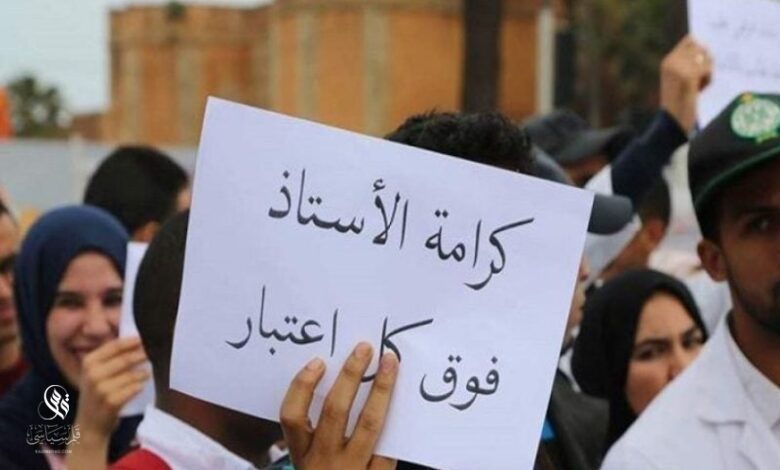 كرامة الأستاذ
فوق كل اعتبار
قلم سياسي